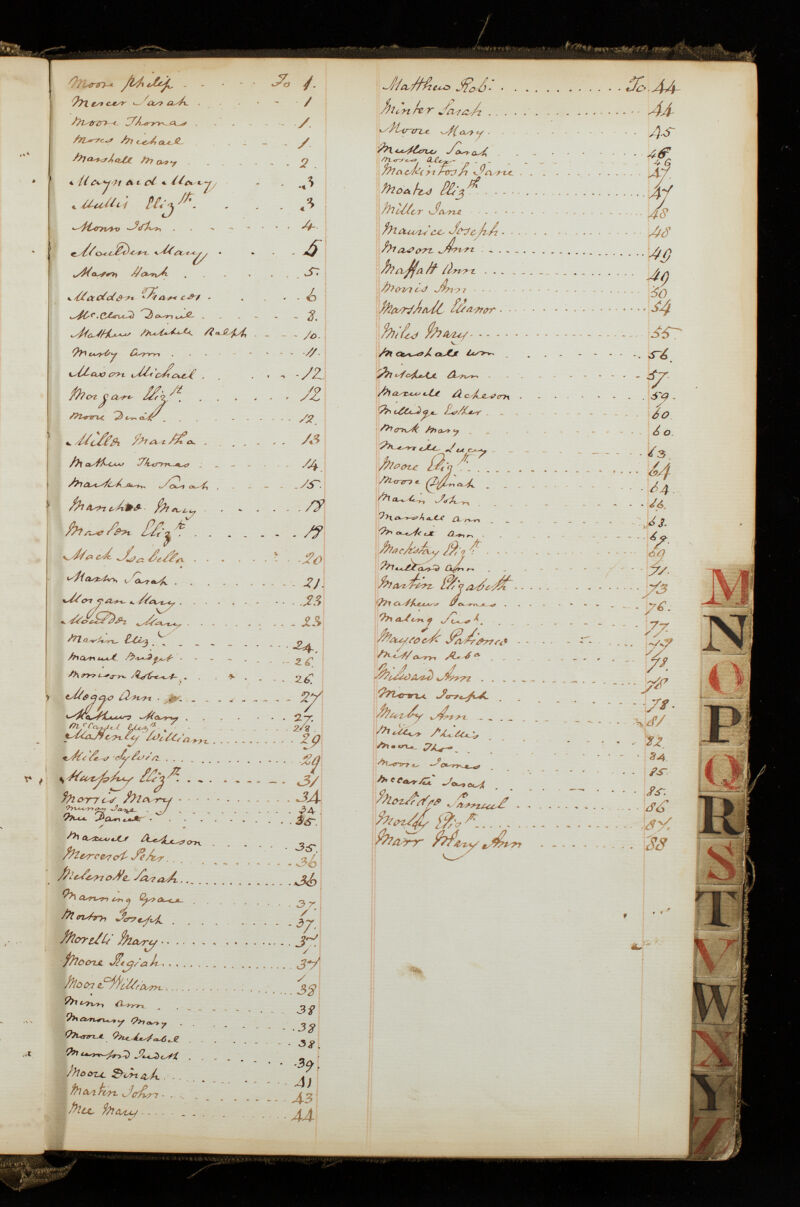 Moore Philip To 1.
Mercer Sarah 1
Moore Thomas 1.
Moses Michael 1.
Marshall Mary 2.
Maynard Mary 3
Mullis Elizth. 3
Monro John 4.
Moulden Mary 5
Mason Hanh 5.
Madden Frances 6
McCloud Daniel 8.
Matthew Mitchell Ralph 10.
Musby Ann 11.
Mason Michael 12
Morgan Elizth. 12
Moore Dinah 12.
Miller Martha 13
Mathew Thomas 14.
Markham Sarah 15.
Mary 18
Maslen Elizth 18
Mack Isabella 20
Sarah 21.
Morgan Mary 23
Moulder Mary 23
Martin Eliz. 24.
Manuel Bridget 26.
Morrison Robert 26.
Meggs Ann 27
Mathews Mary 27.
Elizth 28
William 29
Miles Sylvia 29
Murphy Elizth. 31
Morris Mary 34
Murray Jane 34
Mee Daniel 35.
Maxwell Acheson 35.
Mercerot Peter 36
Melenotte Sarah 36
Manning Grace 37.
Morton Joseph 37.
Morelli Mary 37
Moore Regiah 37
Moore William 38
Minn Ann 38
Manoury Mary 38
Moore Mehetabel 38.
Mumford Judith 39.
Moore Dinah 41
Martin John 43
Mee Mary 44
Matthew Robt. To 44
Minter Sarah 44
Moore Mary 45
Sarah 46
Moses Alexr 46
Mackintosh Jane 47
Moates Elizth 47
Miller Jane 48
Maurice Joseph 48
Mason Ann 49
Maffatt Ann 49
Morris Ann 50
Marshall Eleanor 54
Miles Mary 55
Marshall Wm 56.
Mitchell Ann 57.
Maxwell Acheson 59.
Milledge Esther 60
Monk Mary 60.
Merrell Lucey 63.
Moore Elizth. 64
Moore Dinah 64.
Martin John 66.
Marshall Ann 68.
Mackie Ann 69.
Mackstay Elizth 69
Mullard Ann 71.
Martin Elizabeth 73
Mathews James 76.
Maling Sush. 77.
Maycock Patience 77
Mittam Reba 78.
Milward Ann 78
Moore Joseph 78.
Murby Ann 81
Miller Phillis 82
Moore Thos. 84
Moore James 85
McCartie Sarah 85.
Morlidge Samuel 86
Morley Elizth 87.
Marr Mary Ann 88
M
N
O
P
Q
R
S
T
V
W
X
Y